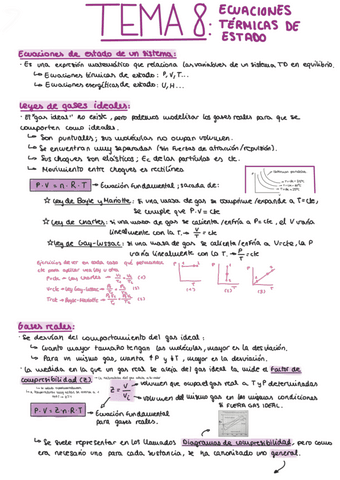 TEMA 8: ECUACIONES
TÉRMICAS DE
ESTADO
Ecuaciones de estado de un sistema:
· Es una expresión matemática que relaciona las variables de un sistema TD en equilibrio.
↳ Ecuaciones térmicas de estado: P, V, T...
↳ Ecuaciones energéticas de estado: U, H...
Leyes de gases ideales:
· El "gas ideal" no existe, pero podemos modelizar los gases reales para que se
comporten como ideales.
↳ Son puntuales; sus moléculas no ocupan volumen.
↳ Se encuentran muy separadas (sin fuerzas de atracción/repulsión).
↳ Sus choques son elásticos; Ec de las partículas es cte.
↳ Movimiento entre choques es rectilíneo
P·V = n·R·T → Ecuación fundamental; sacada de:
☆ Ley de Boyle y Mariotte: si una masa de gas se comprime/expande a T=cte,
se cumple que P·V = cte
☆ Ley de Charles: si una masa de gas se calienta/enfría a P=cte, el V varía
linealmente con la T. → V/T = cte
☆ Ley de Gay-Lussac: si una masa de gas se calienta/enfría a V=cte, la P
varía linealmente con la T. → P/T = cte
cte para aplicar una ley u otra
P=cte → Ley Charles → V₁/T₁ = V₂/T₂ (1)
V=cte → Ley Gay-Lussac → P₁/T₁ = P₂/T₂ (2)
(1)
(2)
(3)
Gases reales:
· Se desvían del comportamiento del gas ideal:
↳ Cuanto mayor tamaño tengan las moléculas, mayor es la desviación.
↳ Para un mismo gas, cuanta ↑P y ↓T, mayor es la desviación.
· La medida en la que un gas real se aleja del gas ideal la mide el Factor de
compresibilidad (Z).
Z = V/Vᵢ
→ Volumen que ocupa el gas real a T y P determinadas
→ Volumen del mismo gas en las mismas condiciones
SI FUERA GAS IDEAL.
P·V = Z·n·R·T → Ecuación fundamental
para gases reales.
↳ Se suele representar en los llamados Diagramas de compresibilidad, pero como
era necesario uno para cada sustancia, se ha canonizado uno general.